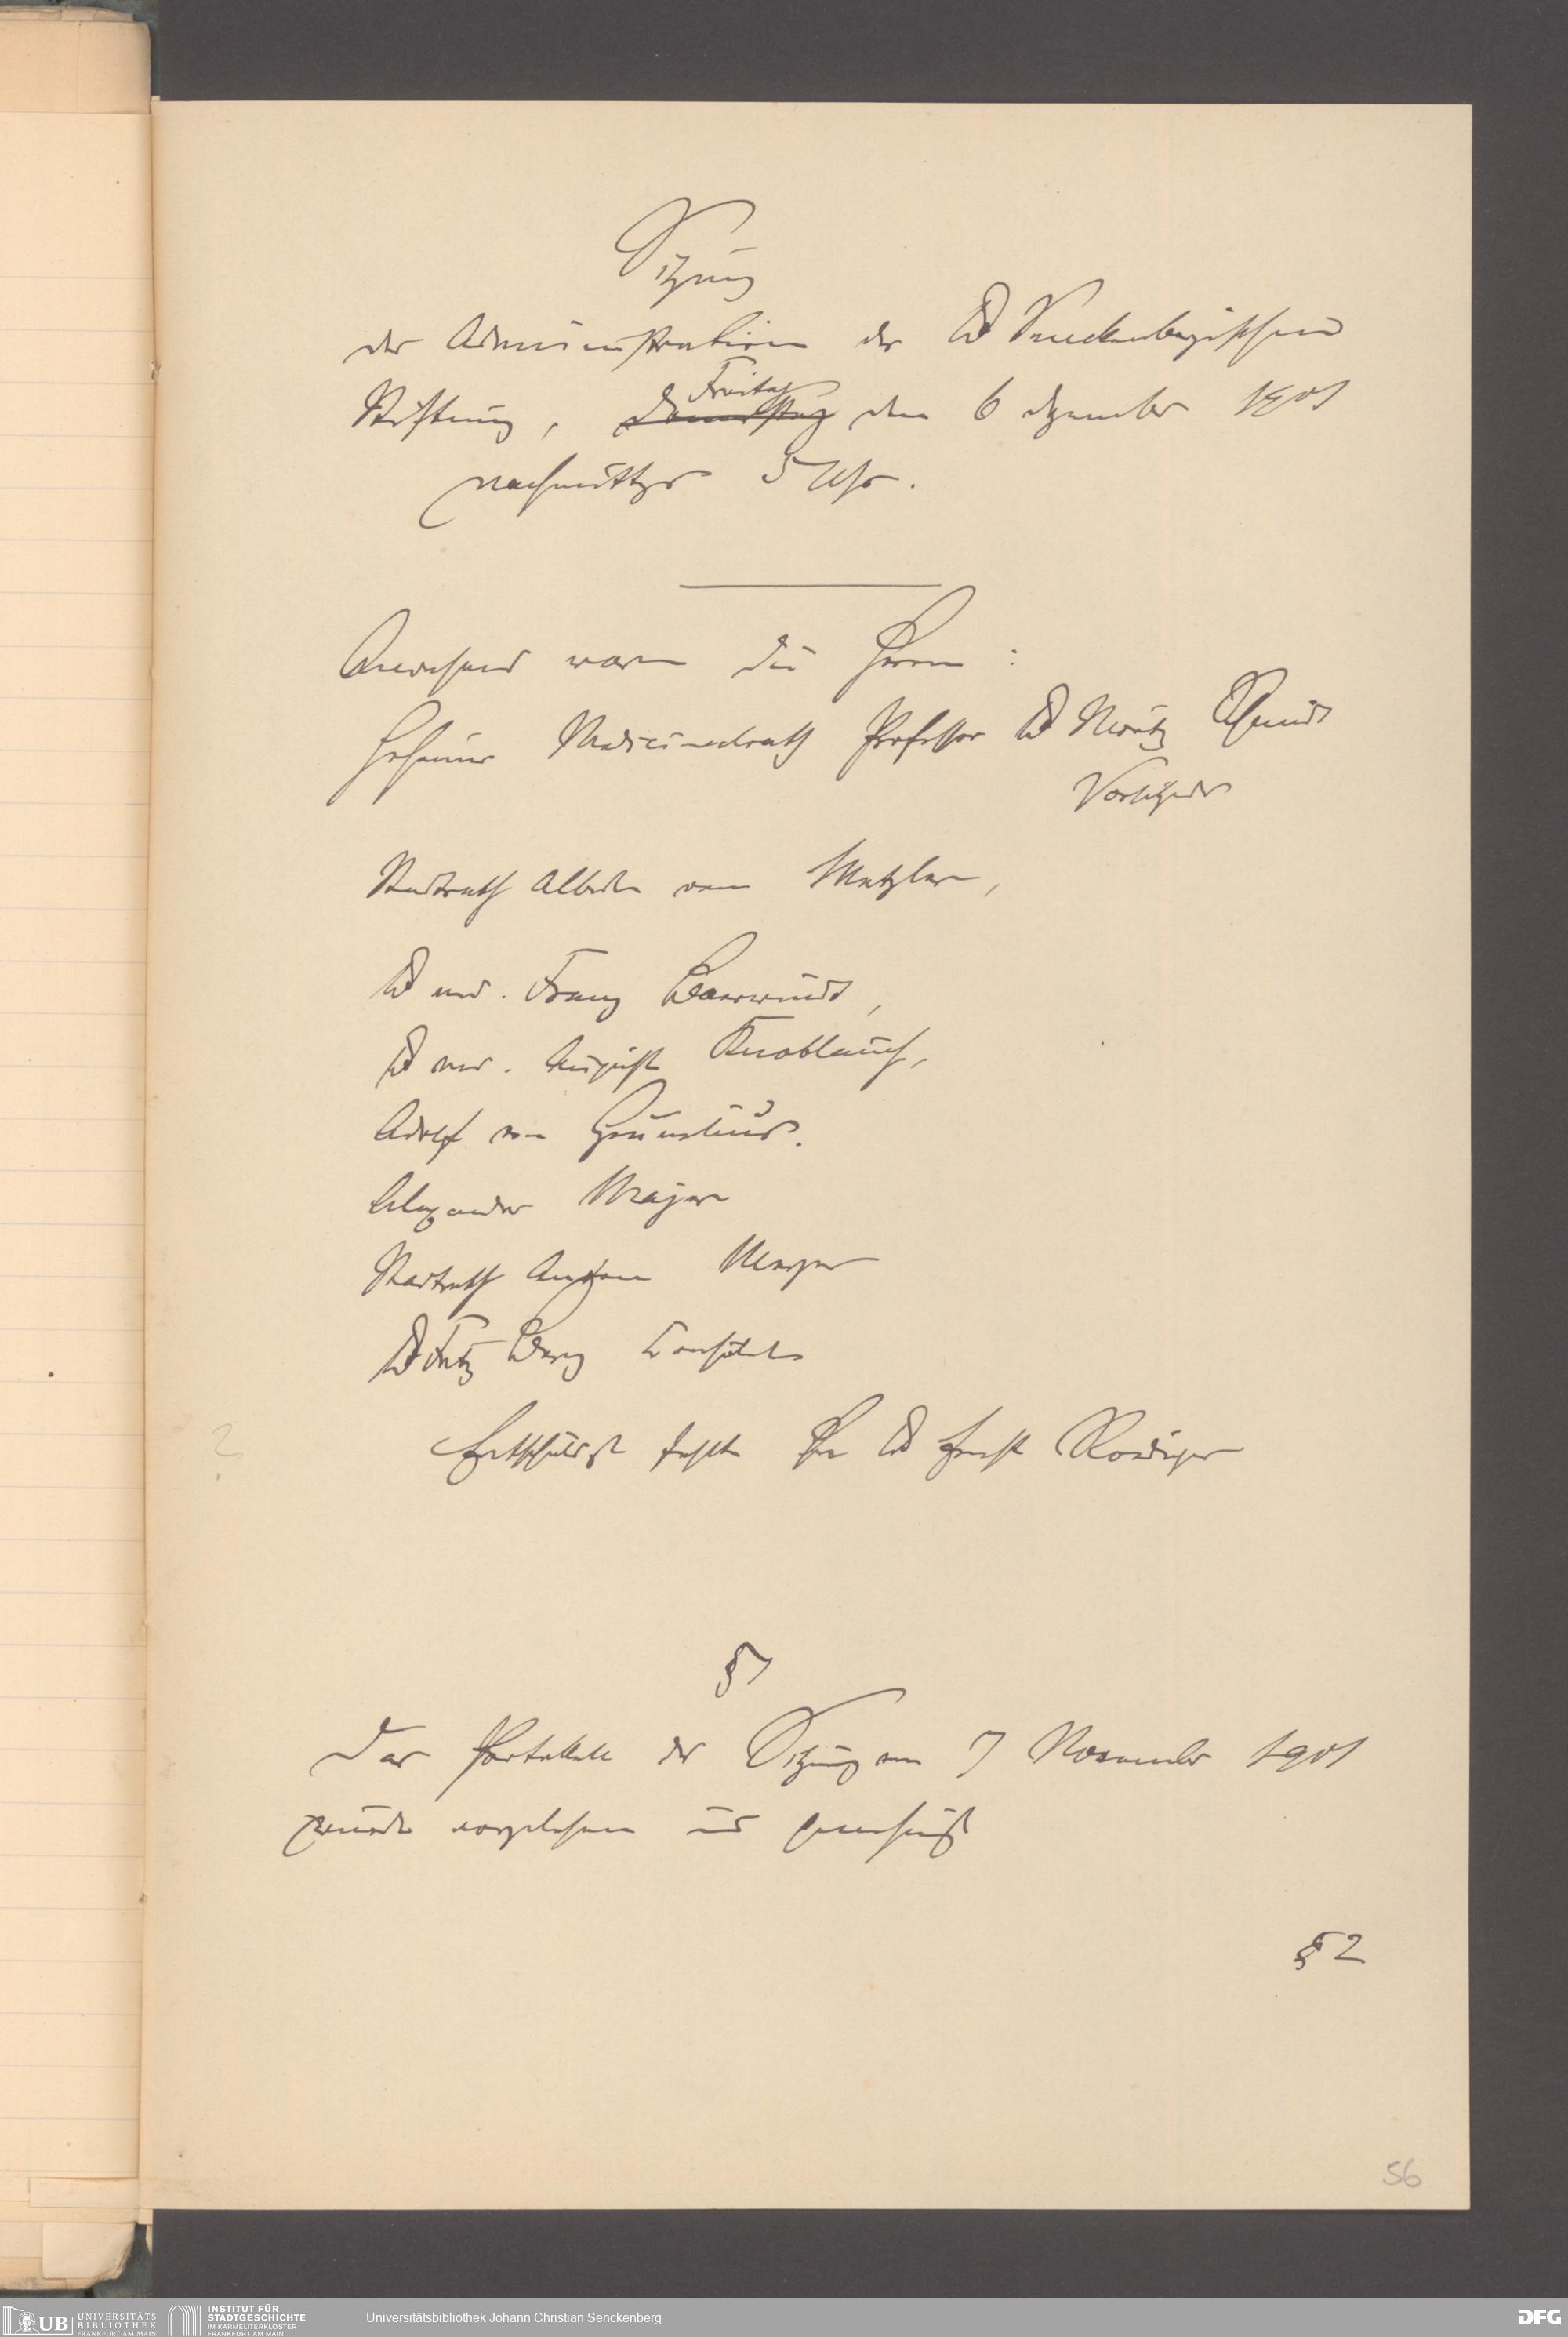 Sitzung
der Administration der Dr Senckenbergischen
Freitag
Stiftung, Donnerstag den 6 dezember 1901
nachmittags 5 Uhr.
Anwesend waren die Herren :
Geheimer Medicinalrath Professor Dr Moritz Schmidt
Vorsitzender
Stadtrath Albert von Metzler,
Dr med. Franz Baerwindt,
Dr med. August Knoblauch,
Adolf von Grunelius.
Alexander Majer
Stadtrath Anton Meyer
Dr Fritz Berg Consulent
Entschuldigt fehlte Herr Dr Ernst Roediger
?
§ 1
Das Protokoll der Sitzung vom 7 November 1901
wurde vorgelesen und genehmigt
§ 2
56
UB UNIVERSITÄTS
BIBLIOTHEK
FRANKFURT AM MAIN
INSTITUT FÜR
STADTGESCHICHTE
IM KARMELITERKLOSTER
FRANKFURT AM MAIN
Universitätsbibliothek Johann Christian Senckenberg
DFG